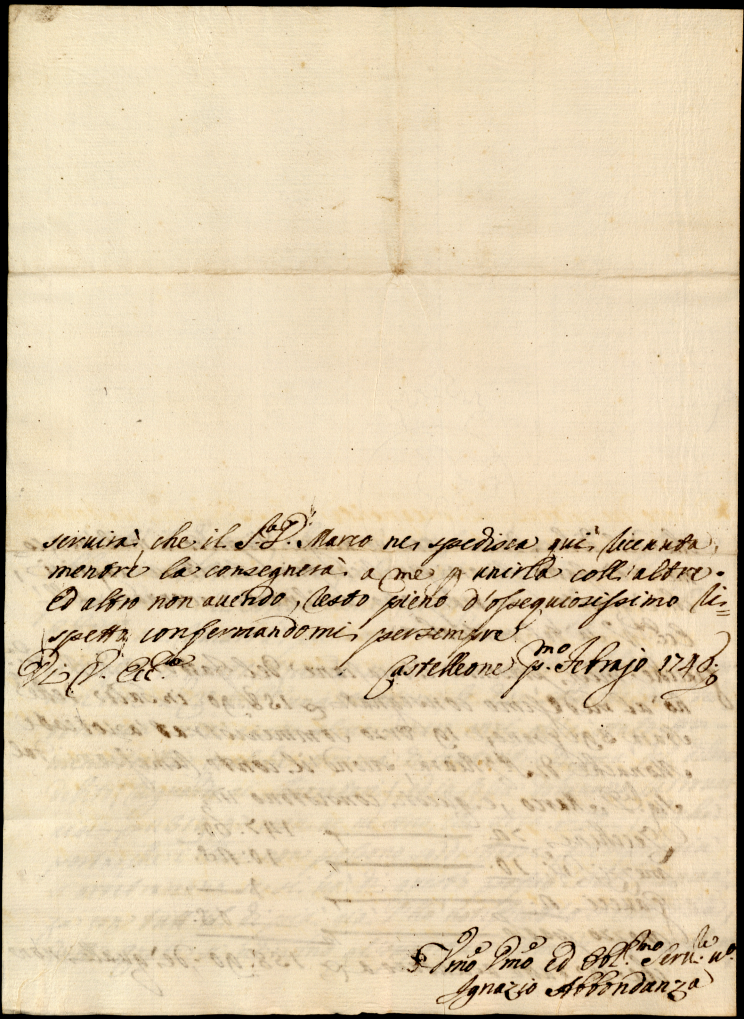 servirà, che il S.r D. Marco ne spedisca quì ricevuta,
mentre la consegnerà a me p unirla coll'altre.
Ed altro non avendo, resto pieno d'ossequiosissimo ri=
spetto, confermandomi persempre
Di V. Ecc.za Castelleone p.mo Febrajo 174
Vmo Dmo ed Obl.mo Serv.le
Ignazio Abbondanza